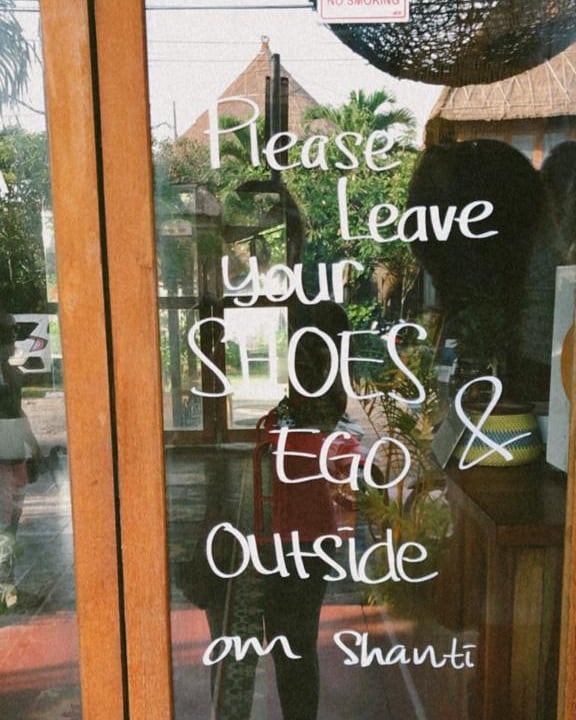 NO SMOKING
Please
Leave
your
SHOES
&
EGO
Outside
om Shanti